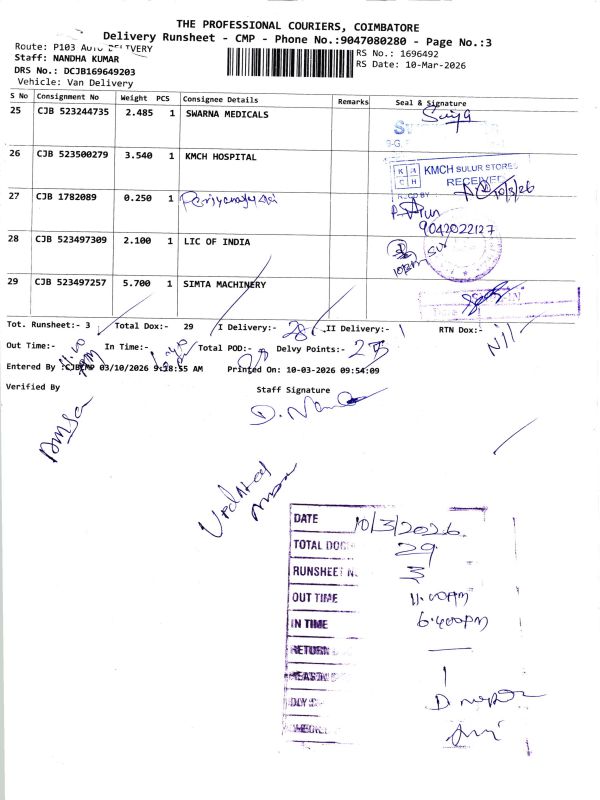 THE PROFESSIONAL COURIERS, COIMBATORE
Delivery Runsheet - CMP - Phone No.:9047080280 - Page No.:3
Route: P103 AUTO DELIVERY
Staff: NANDHA KUMAR
RS No.: 1696492
DRS No.: DCJB169649203
RS Date: 10-Mar-2026
Vehicle: Van Delivery
S No Consignment No Weight PCS Consignee Details Remarks Seal & Signature
25 CJB 523244735 2.485 1 SWARNA MEDICALS
26 CJB 523500279 3.540 1 KMCH HOSPITAL
KMCH SULUR STORES
RECEIVED
10/3/26
27 CJB 1782089 0.250 1
9042022127
28 CJB 523497309 2.100 1 LIC OF INDIA
29 CJB 523497257 5.700 1 SIMTA MACHINERY
Tot. Runsheet:- 3 Total Dox:- 29 I Delivery:- 28 II Delivery:- 1 RTN Dox:- Nil
Out Time:- 11.00 AM In Time:- Total POD:- Delvy Points:- 25
Entered By :CJBCMP 03/10/2026 9:18:55 AM Printed On: 10-03-2026 09:54:09
Verified By Staff Signature
Updated
DATE 10/3/2026
TOTAL DOC 29
RUNSHEET N. 3
OUT TIME 11.00AM
IN TIME 6.40PM
RETURN
REASON
DLY